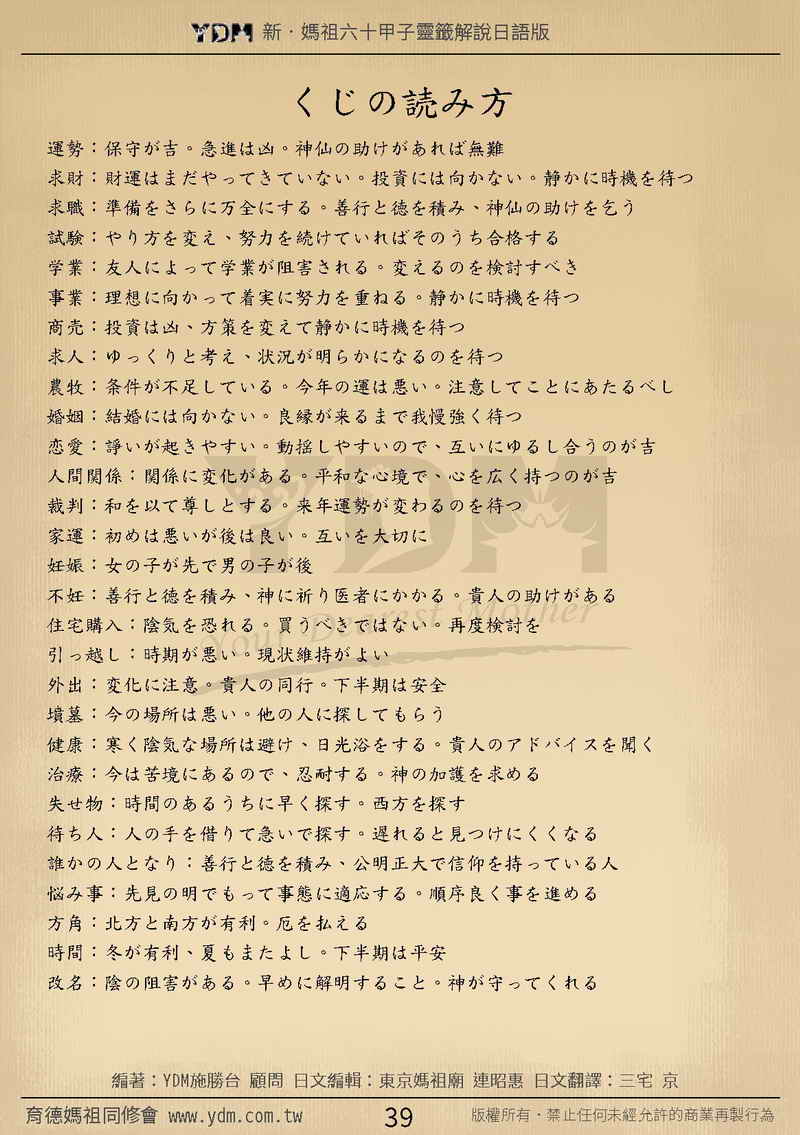 YDM 新・媽祖六十甲子靈籤解說日語版
くじの読み方
運勢：保守が吉。急進は凶。神仙の助けがあれば無難
求財：財運はまだやってきていない。投資には向かない。静かに時機を待つ
求職：準備をさらに万全にする。善行と徳を積み、神仙の助けを乞う
試験：やり方を変え、努力を続けていればそのうち合格する
学業：友人によって学業が阻害される。変えるのを検討すべき
事業：理想に向かって着実に努力を重ねる。静かに時機を待つ
商売：投資は凶、方策を変えて静かに時機を待つ
求人：ゆっくりと考え、状況が明らかになるのを待つ
農牧：条件が不足している。今年の運は悪い。注意してことにあたるべし
婚姻：結婚には向かない。良縁が来るまで我慢強く待つ
恋愛：諍いが起きやすい。動揺しやすいので、互いにゆるし合うのが吉
人間関係：関係に変化がある。平和な心境で、心を広く持つのが吉
裁判：和を以て尊しとする。来年運勢が変わるのを待つ
家運：初めは悪いが後は良い。互いを大切に
妊娠：女の子が先で男の子が後
不妊：善行と徳を積み、神に祈り医者にかかる。貴人の助けがある
住宅購入：陰気を恐れる。買うべきではない。再度検討を
引っ越し：時期が悪い。現状維持がよい
外出：変化に注意。貴人の同行。下半期は安全
墳墓：今の場所は悪い。他の人に探してもらう
健康：寒く陰気な場所は避け、日光浴をする。貴人のアドバイスを聞く
治療：今は苦境にあるので、忍耐する。神の加護を求める
失せ物：時間のあるうちに早く探す。西方を探す
待ち人：人の手を借りて急いで探す。遅れると見つけにくくなる
誰かの人となり：善行と徳を積み、公明正大で信仰を持っている人
悩み事：先見の明でもって事態に適応する。順序良く事を進める
方角：北方と南方が有利。厄を払える
時間：冬が有利、夏もまたよし。下半期は平安
改名：陰の阻害がある。早めに解明すること。神が守ってくれる
YDM
Your Dearest Mother
編著：YDM施勝台 顧問 日文編輯：東京媽祖廟 連昭惠 日文翻譯：三宅 京
育德媽祖同修會 www.ydm.com.tw 39 版權所有・禁止任何未經允許的商業再製行為